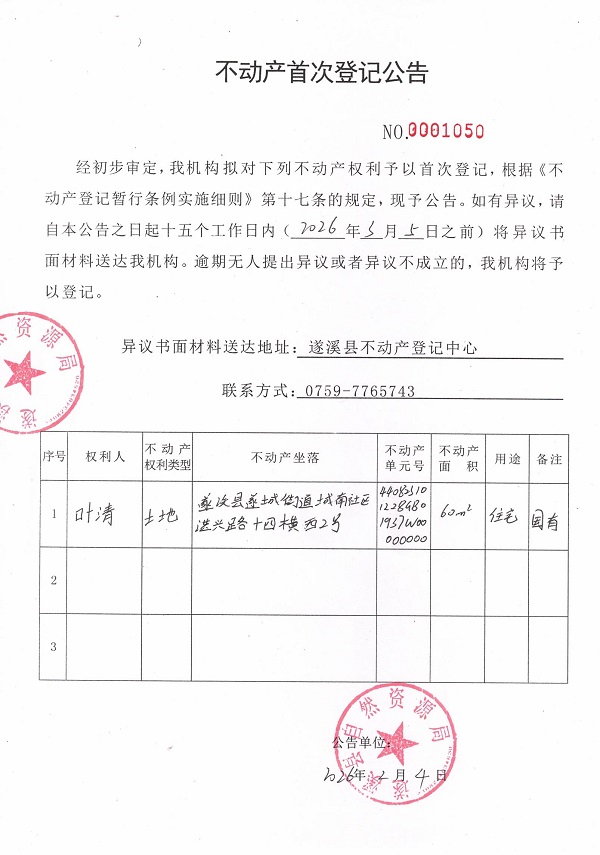 不动产首次登记公告
NO.0001050
经初步审定，我机构拟对下列不动产权利予以首次登记，根据《不
动产登记暂行条例实施细则》第十七条的规定，现予公告。如有异议，请
自本公告之日起十五个工作日内（2026年3月5日之前）将异议书
面材料送达我机构。逾期无人提出异议或者异议不成立的，我机构将予
以登记。
异议书面材料送达地址：遂溪县不动产登记中心
联系方式：0759-7765743
序号 权利人 不动产权利类型 不动产坐落 不动产单元号 不动产面积 用途 备注
1 叶清 土地 遂溪县遂城街道城南社区进兴路十四横西2号 60m² 住宅 国有
2
3
遂溪县自然资源局
公告单位：
2026年2月4日